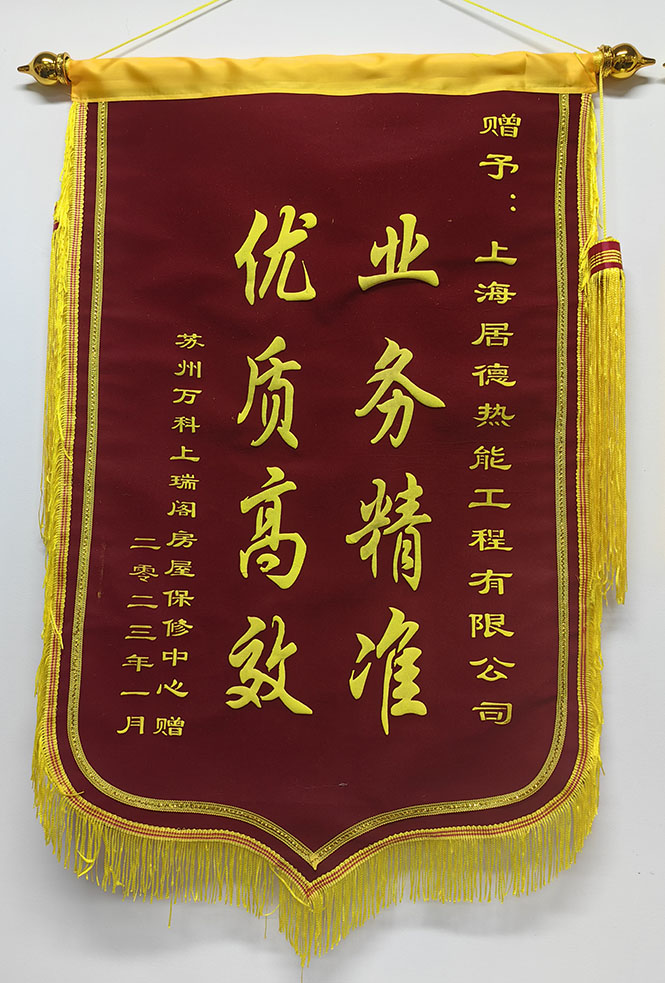 赠予：上海居德热能工程有限公司
业务精准
优质高效
苏州万科上瑞阁房屋保修中心赠
二零二三年一月